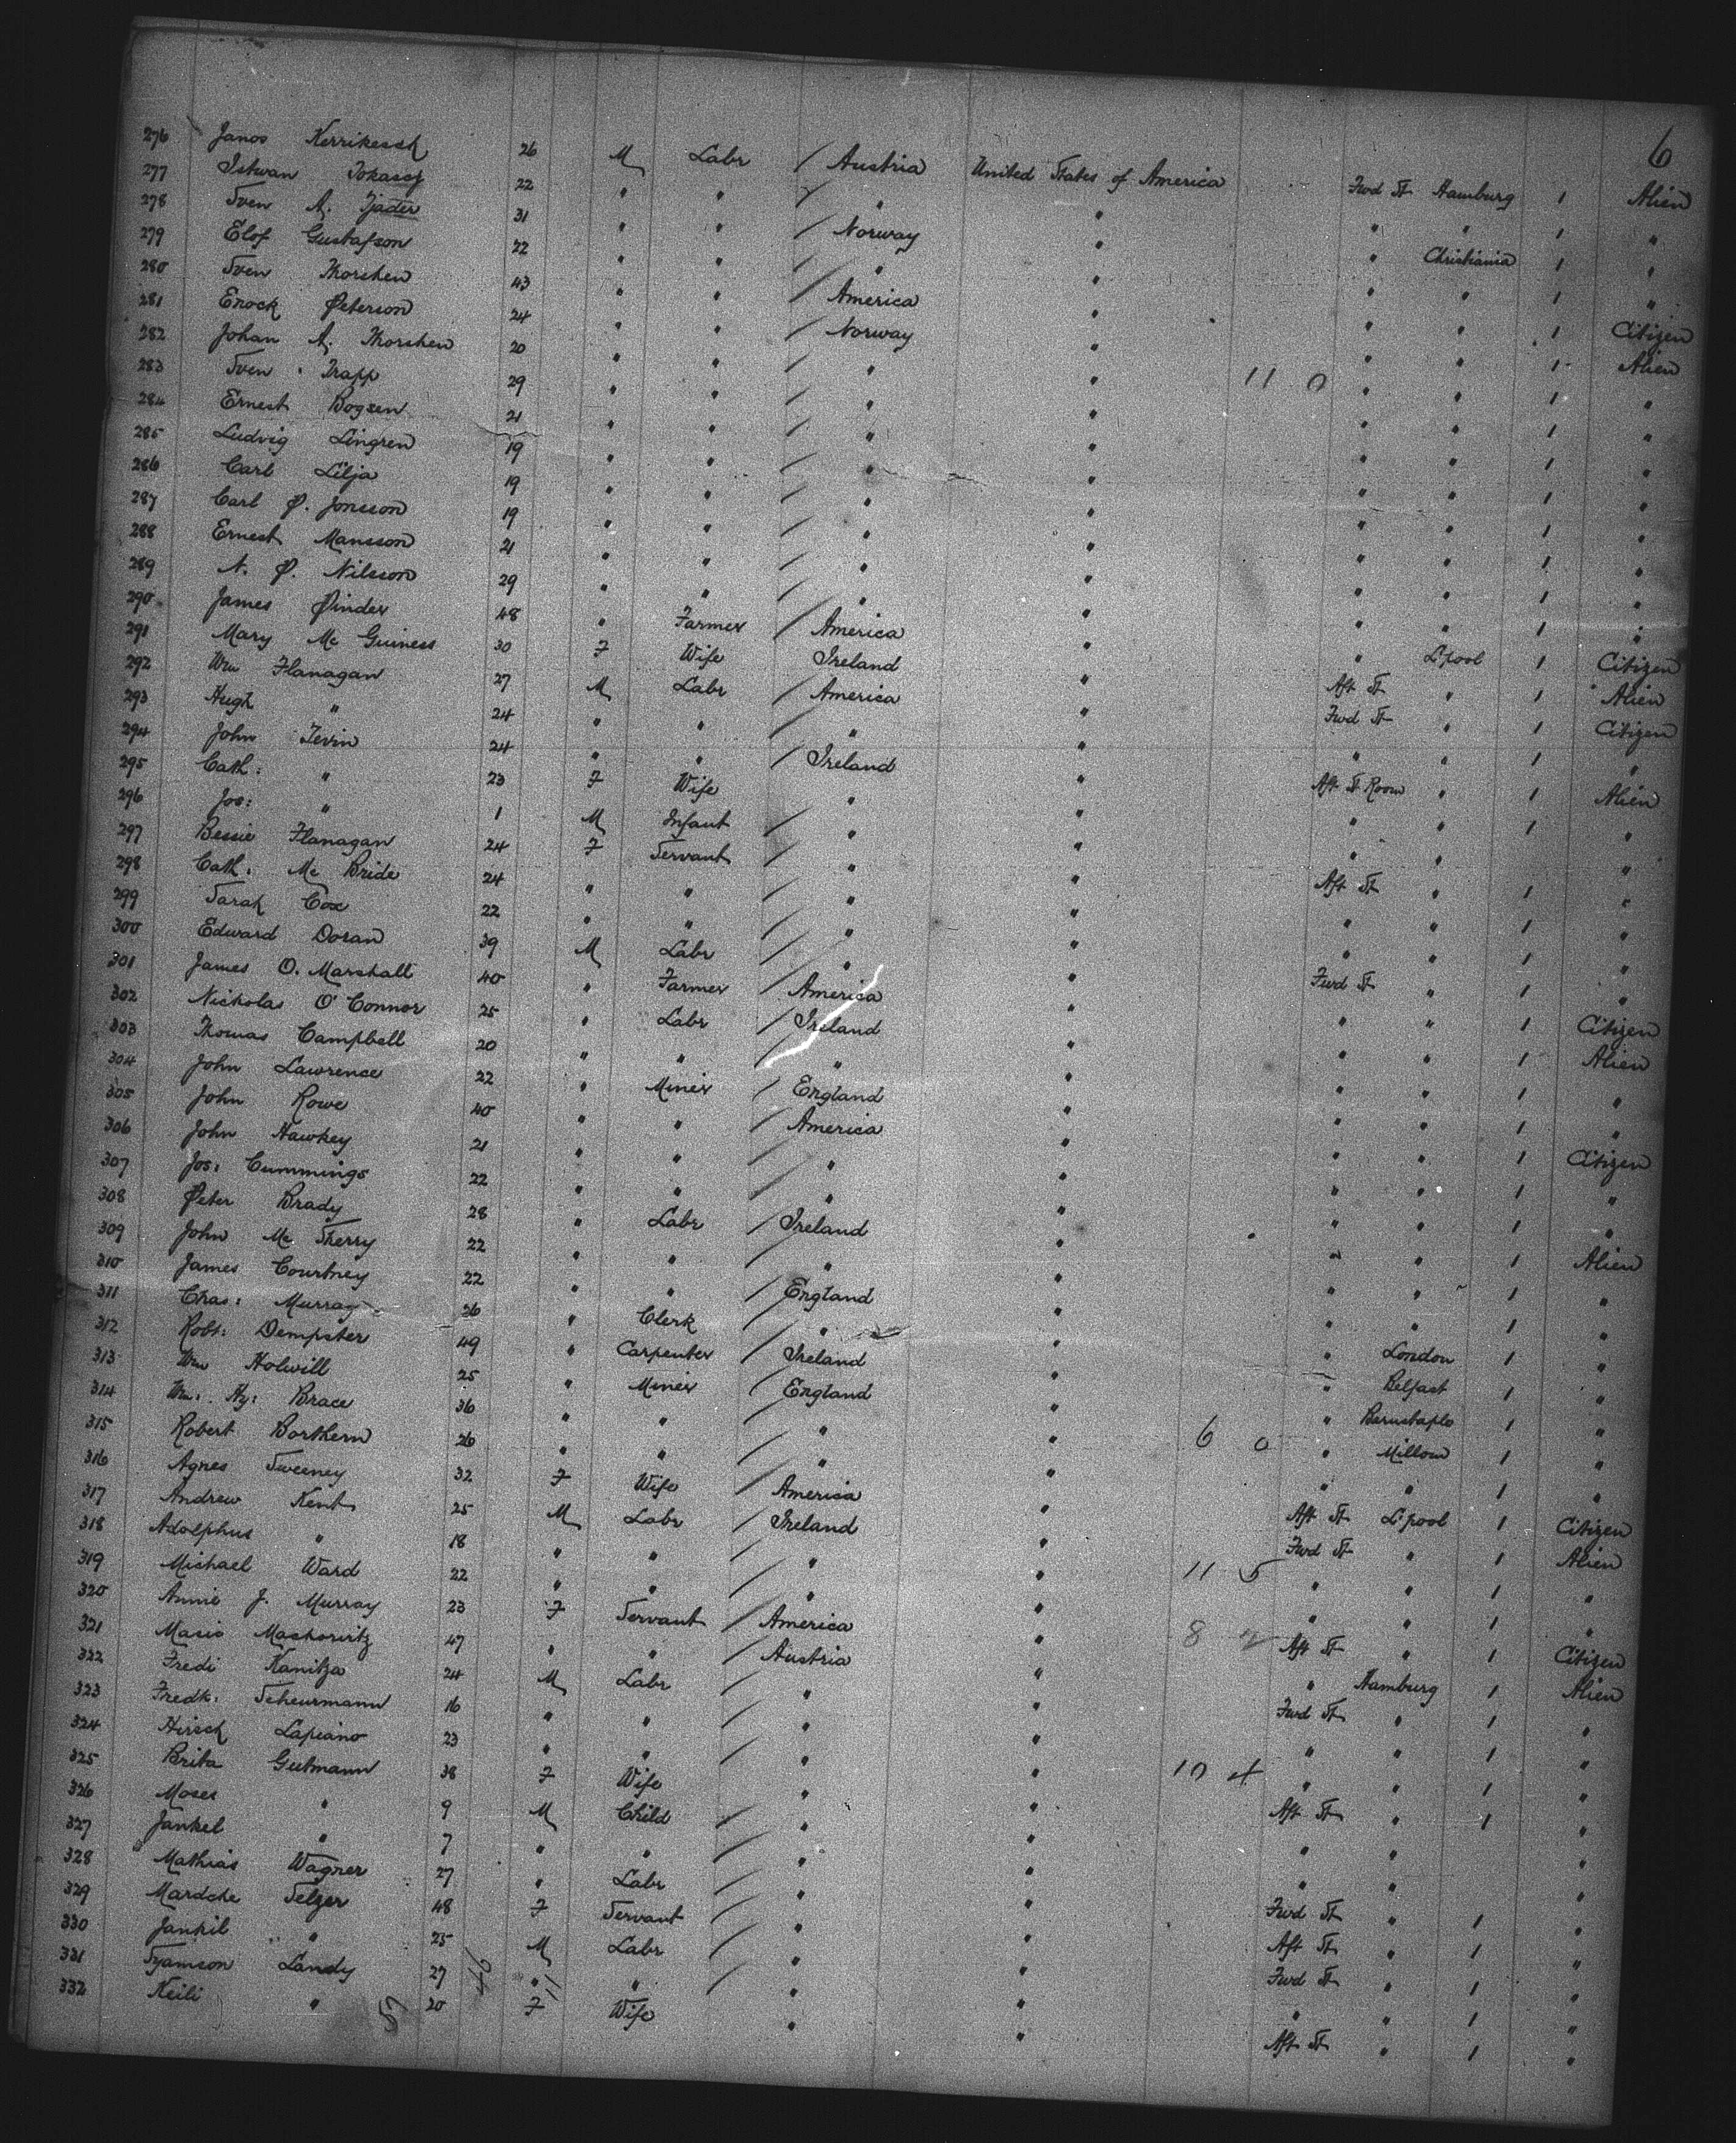 6
276 Janos Kerrikessh 26 M Labr / Austria United States of America Fwd St Hamburg 1 Alien
277 Istwan Tokascz 22 " " / " " " " 1 "
278 Sven A. Tjäder 31 " " / Norway " " Christiania 1 "
279 Elof Gustafson 22 " " / " " " " 1 "
280 Sven Thorshen 43 " " / America " " " 1 Citizen
281 Enock Peterson 24 " " / Norway " " " 1 Alien
282 Johan A. Thorshen 20 " " / " " " " 1 "
283 Sven Trapp 29 " " / " " 11 0 " " 1 "
284 Ernest Bogsen 21 " " / " " " " 1 "
285 Ludvig Lingren 19 " " / " " " " 1 "
286 Carl Lilja 19 " " / " " " " 1 "
287 Carl P. Jonsson 19 " " / " " " " 1 "
288 Ernest Mansson 21 " " / " " " " 1 "
289 N. P. Nilsson 29 " " / " " " " 1 "
290 James Pinder 48 " Farmer / America " " L'pool 1 Citizen
291 Mary Mc Guiness 30 F Wife / Ireland " Aft St " 1 Alien
292 Wm Flanagan 27 M Labr / America " Fwd St " 1 Citizen
293 Hugh " 24 " " / " " " " 1 "
294 John Tevin 24 " " / Ireland " Aft St Room " 1 Alien
295 Cath: " 23 F Wife " " " " 1 "
296 Jos: " 1 M Infant / " " " " "
297 Bessie Flanagan 24 F Servant / " " Aft St " 1 "
298 Cath: Mc Bride 24 " " / " " " " 1 "
299 Sarah Cox 22 " " / " " " " 1 "
300 Edward Doran 39 M Labr / " " Fwd St " 1 "
301 James O. Marshall 40 " Farmer / America " " " 1 Citizen
302 Nicholas O'Connor 25 " Labr / Ireland " " " 1 Alien
303 Thomas Campbell 20 " " / " " " " 1 "
304 John Lawrence 22 " Miner / England " " " 1 "
305 John Rowe 40 " " / America " " " 1 Citizen
306 John Hawkey 21 " " / " " " " 1 "
307 Jos: Cummings 22 " " / " " " " 1 "
308 Peter Brady 28 " Labr / Ireland " " " 1 Alien
309 John Mc Sherry 22 " " / " " " " 1 "
310 James Courtney 22 " " / England " " " 1 "
311 Chas: Murray 26 " Clerk / " " " London 1 "
312 Robt: Dempster 49 " Carpenter / Ireland " " Belfast 1 "
313 Wm Holwill 25 " Miner / England " " Barnstaple 1 "
314 Wm: Hy: Brace 36 " " / " " 6 0 " Millow 1 "
315 Robert Borthern 26 " " / " " " " 1 "
316 Agnes Sweeney 32 F Wife / America " Aft St L'pool 1 Citizen
317 Andrew Kent 25 M Labr / Ireland " Fwd St " 1 Alien
318 Adolphus " 18 " " / " " 11 5 " " 1 "
319 Michael Ward 22 " " / " " " " 1 "
320 Annie J. Murray 23 F Servant / America " 8 Aft St " 1 Citizen
321 Masio Machorvitz 47 " " / Austria " " Hamburg 1 Alien
322 Fredi Kanitza 24 M Labr / " " Fwd St " 1 "
323 Fredk: Scheurmann 16 " " / " " " " 1 "
324 Hirsch Lapiano 23 " " / " " 10 4 " " 1 "
325 Brita Gutmann 38 F Wife " " Aft St " 1 "
326 Moses " 9 M Child / " " " " "
327 Jankel " 7 " " / " " " " "
328 Mathias Wagner 27 " Labr / " " Fwd St " 1 "
329 Mardche Selzer 48 F Servant / " " Aft St " 1 "
330 Jankil " 25 M Labr / " " Fwd St " 1 "
331 Syamson Landy 27 " " / " " " " 1 "
332 Keili " 20 F Wife " " Aft St " 1 "
46 11
57